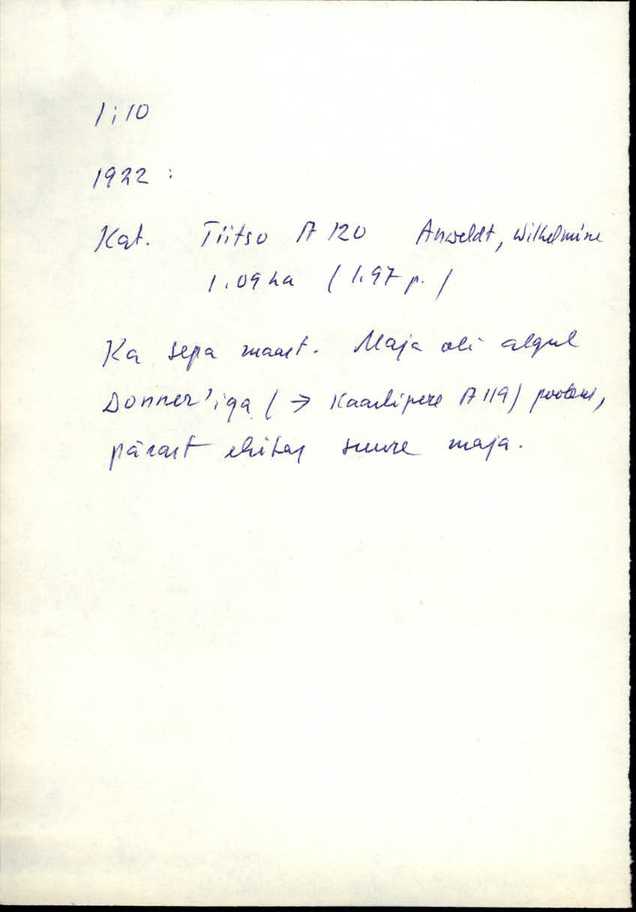 1:10
1922 :
Kat. Tiitso A 120 Anveldt, Wilhelmine
1.09 ha (1.97 p.)
Ka sepa maast. Maja oli algul
Donner'iga (→ Kaarlipere A 119) pooleni,
pärast ehitas suure maja.